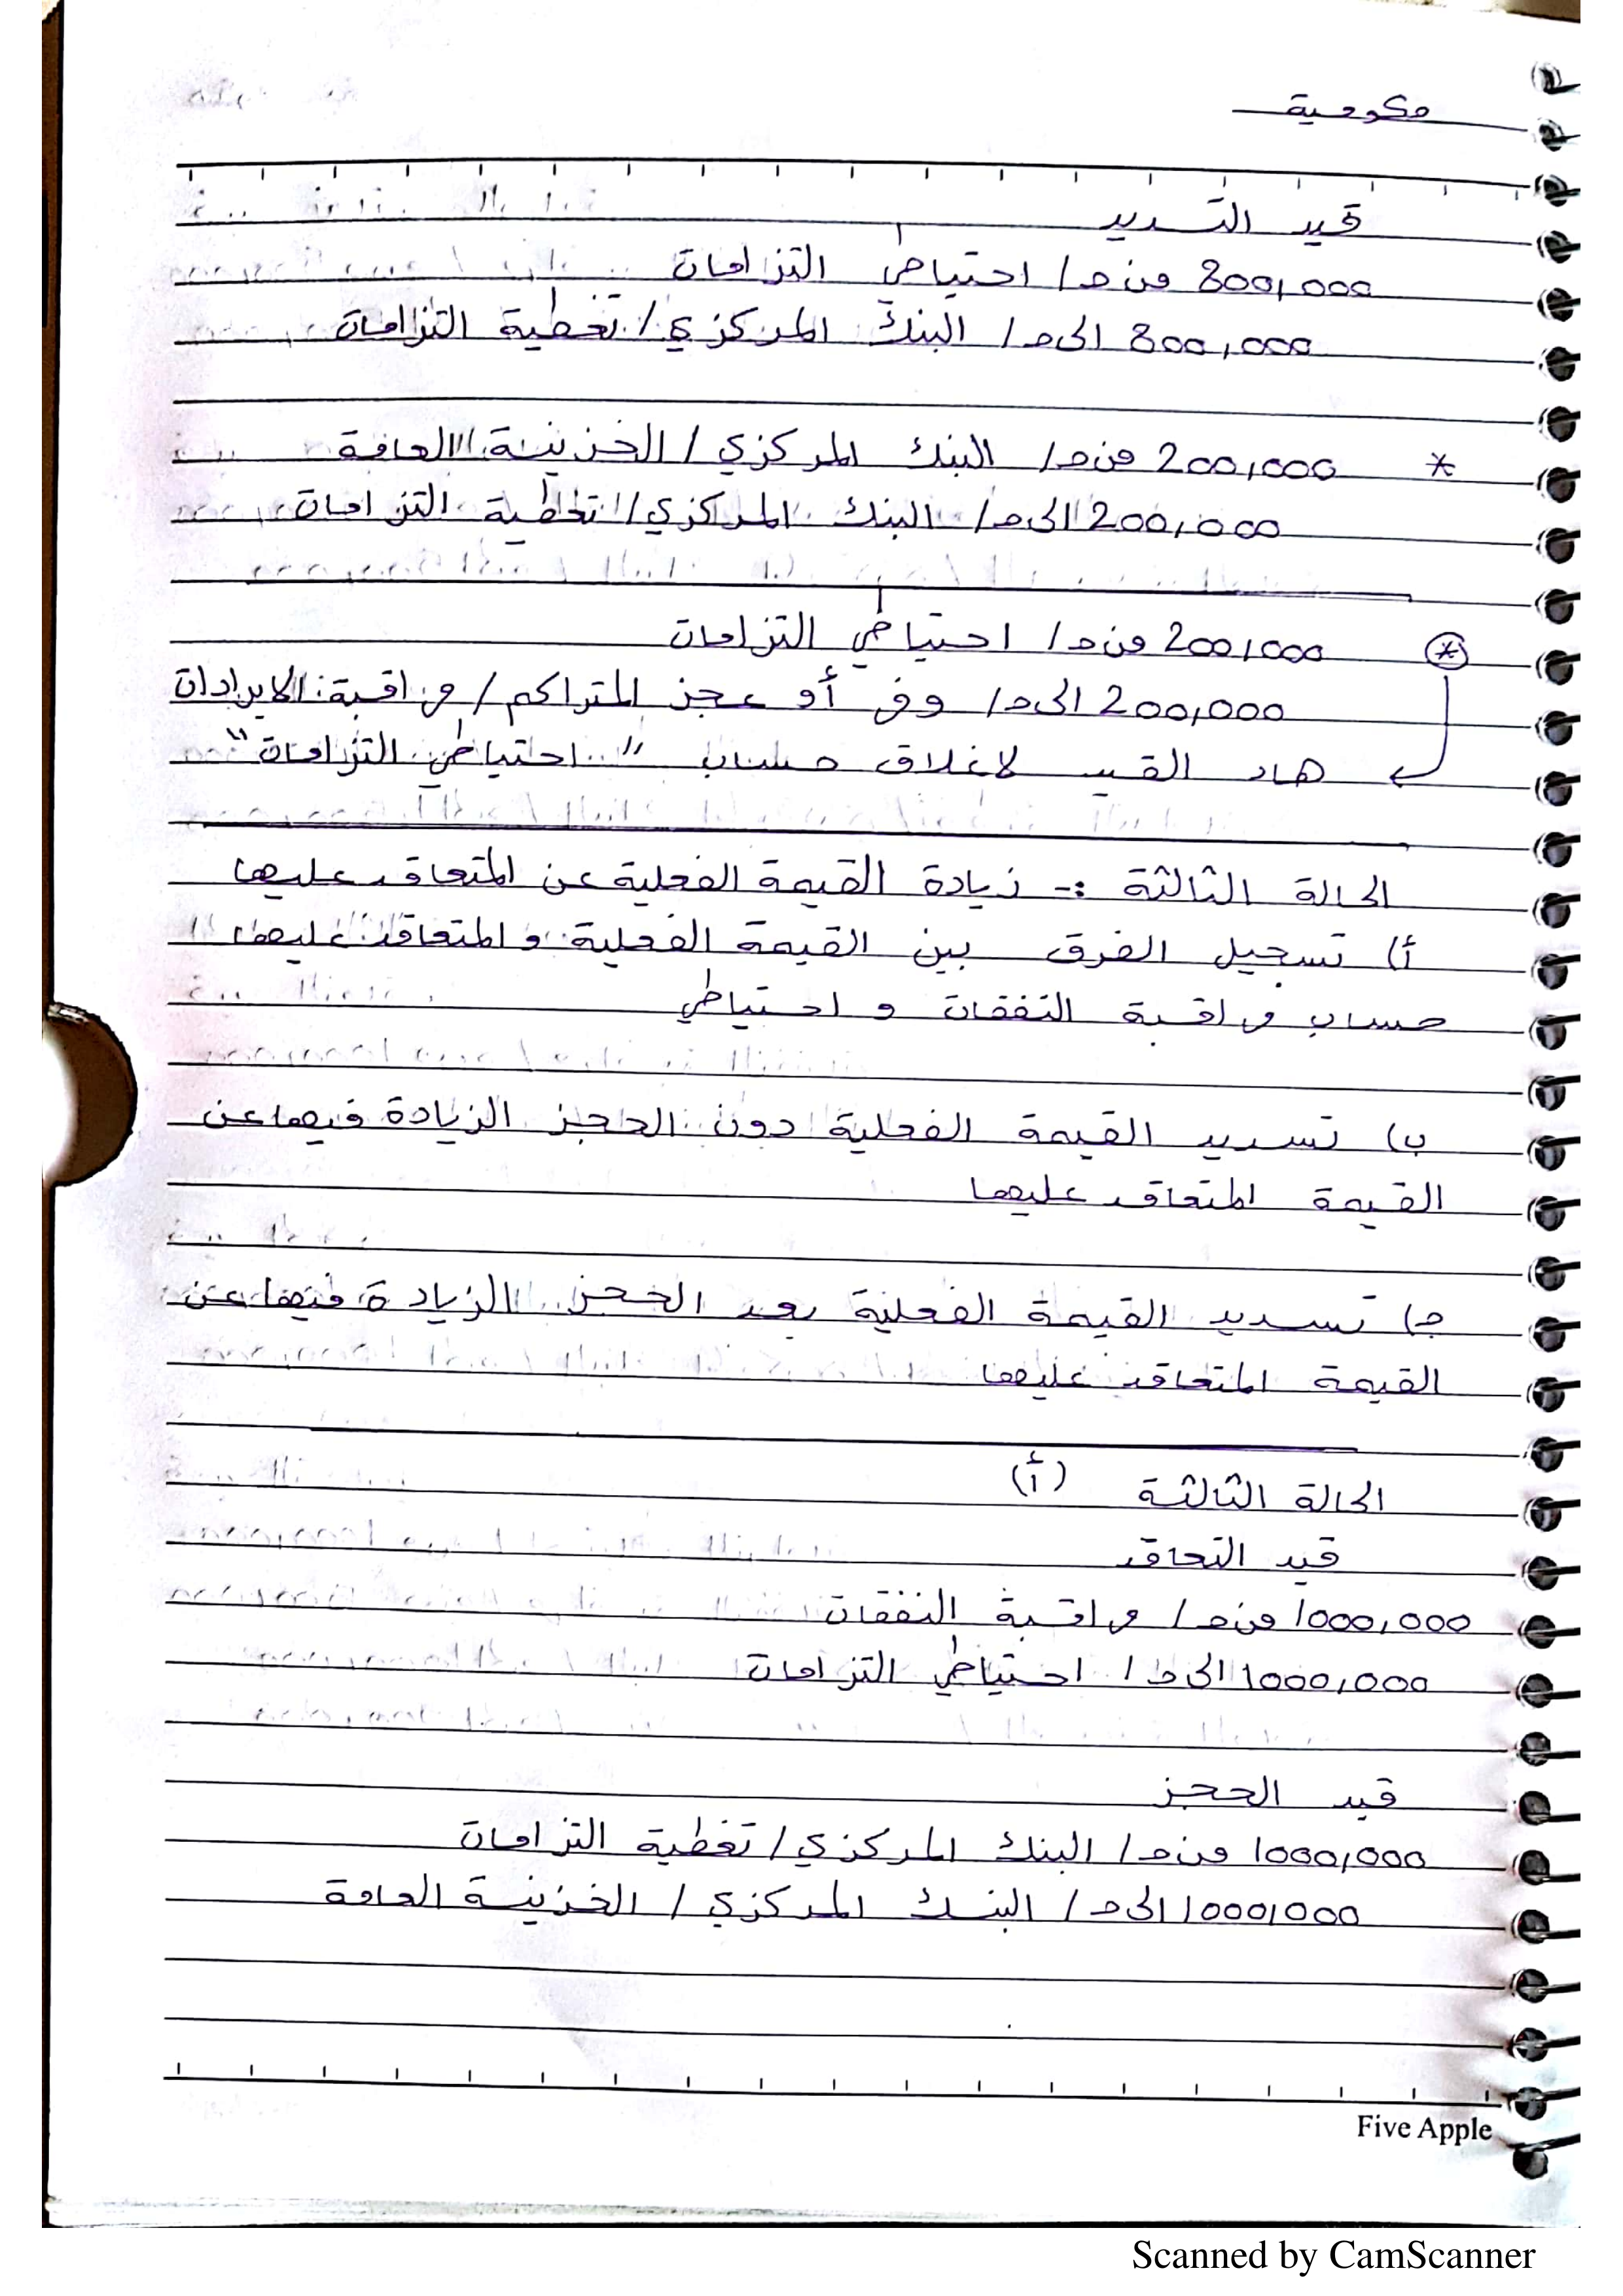 حكومية
قيد التسديد
800,000 من ح/ احتياطي التزامات
800,000 الى ح/ البنك المركزي/ تغطية التزامات
* 200,000 من ح/ البنك المركزي/ الخزينة العامة
200,000 الى ح/ البنك المركزي/ تغطية التزامات
* 200,000 من ح/ احتياطي التزامات
200,000 الى ح/ وفر أو عجز المتراكم/ مراقبة الايرادات
هاد القيد لاغلاق حساب "احتياطي التزامات"
الحالة الثالثة :- زيادة القيمة الفعلية عن المتعاقد عليها
أ) تسجيل الفرق بين القيمة الفعلية و المتعاقد عليها
حساب مراقبة النفقات و احتياطي
ب) تسديد القيمة الفعلية دون الحجز الزيادة فيها عن
القيمة المتعاقد عليها
ج) تسديد القيمة الفعلية بعد الحجز الزيادة فيها عن
القيمة المتعاقد عليها
الحالة الثالثة (أ)
قيد التعاقد
1000,000 من ح/ مراقبة النفقات
1000,000 الى ح/ احتياطي التزامات
قيد الحجز
1000,000 من ح/ البنك المركزي/ تغطية التزامات
1000,000 الى ح/ البنك المركزي/ الخزينة العامة
Five Apple
Scanned by CamScanner